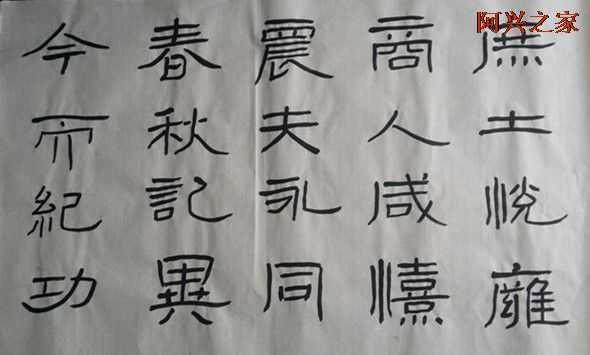 阿兴之家
庶士悅雍
商人咸憘
農夫永同
春秋記異
今而紀功